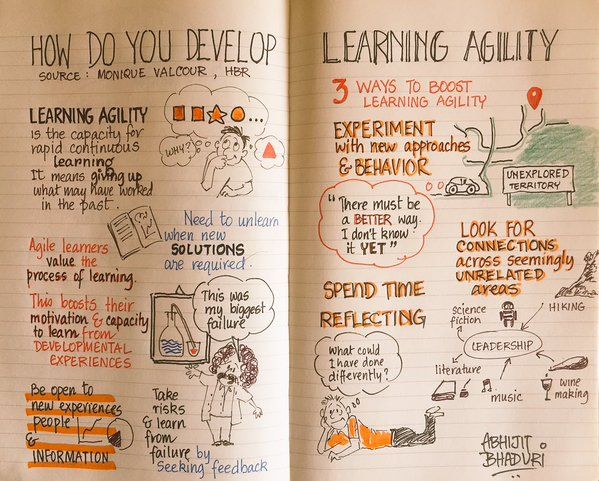 HOW DO YOU DEVELOP
SOURCE : MONIQUE VALCOUR , HBR
LEARNING AGILITY
is the capacity for
rapid continuous
learning.
It means giving up
what may have worked
in the past.
WHY?
Need to unlearn
when new
SOLUTIONS
are required.
Agile learners
value the
process of learning.
This boosts their
motivation & capacity
to learn from
DEVELOPMENTAL
EXPERIENCES
This was
my biggest
failure
Be open to
new experiences
people
&
INFORMATION
Take
risks
& learn
from
failure by
seeking feedback
LEARNING AGILITY
3 WAYS TO BOOST
LEARNING AGILITY
EXPERIMENT
with new approaches
& BEHAVIOR
UNEXPLORED
TERRITORY
"There must be
a BETTER way.
I don't know
it YET"
LOOK FOR
CONNECTIONS
across seemingly
UNRELATED
areas
SPEND TIME
REFLECTING
What could
I have done
differently?
science
fiction
HIKING
LEADERSHIP
literature
music
wine
making
ABHIJIT
BHADURI